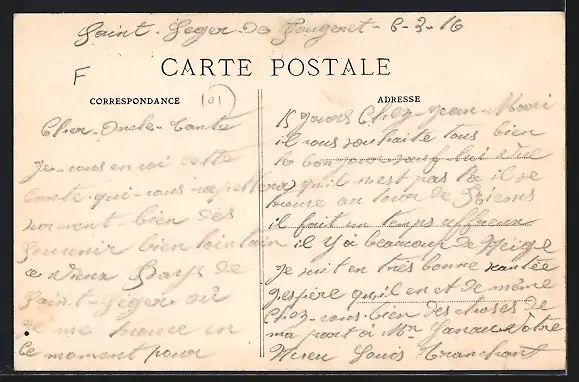 Saint-Leger-De Fougeret - 6-3-16
F
CARTE POSTALE
CORRESPONDANCE
(01)
ADRESSE
Cher-Oncle-Tante
Je-vous en voi cette
Carte-qui-vous-rapellera
surment-bien des
Souvenir bien lointain
ce Vieux Pays de
Saint-Leger où
Je me trouve en
Ce moment pour
15 Jours Chez-Jean-Marie
il vous souhaite tous bien
le bonjour sauf lui vue
qu'il n'est pas là il se
trouve au tour de
il fait un temps affreux
il y a beaucoup de Neige
Je suit en très bonne santée
J'espère qu'il en et de même
Chez-vous-bien des choses de
ma part à Mr Votre
Neveu Louis Tranchant